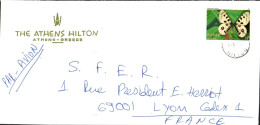 THE ATHENS HILTON
ATHENS - GREECE
PAR-AVION
S. F. E. R.
1 Rue President E. Herriot
69001 Lyon Cedex 1
FRANCE